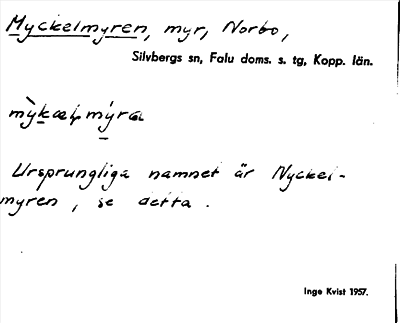 Myckelmyren, myr, Norbo,
Silvbergs sn, Falu doms. s. tg, Kopp. län.
Ursprungliga namnet är Nyckel-
myren, se detta.
Inge Kvist 1957.